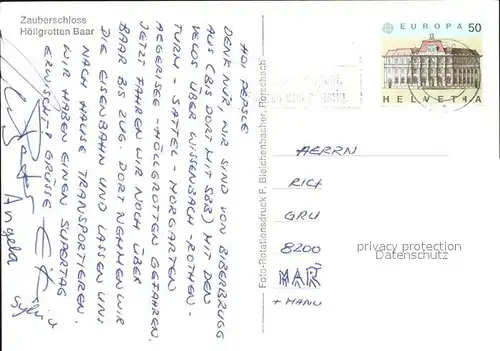 Zauberschloss
Höllgrotten Baar
HOI PEPSLE
DENK NUR, WIR SIND VON BIBERBRUGG
AUS (BIS DORT MIT SBB) MIT DEN
VELOS ÜBER WISSENBACH - ROTHEN-
TURM - SATTEL - MORGARTEN
AEGERISEE - HÖLLGROTTEN GEFAHREN.
JETZT FAHREN WIR NOCH ÜBER
BAAR BIS ZUG. DORT NEHMEN WIR
DIE EISENBAHN UND LASSEN UNS
NACH HAUSE TRANSPORTIEREN.
WIR HABEN EINEN SUPERTAG
ERWISCHT! GRÜSSE
Angela
Sylvia
Foto-Rotationsdruck F. Bleichenbacher, Rorschach
EUROPA 50
HELVETIA
HERRN
RICH
GRU
8200
MAR
+ MANU
privacy protection
Datenschutz